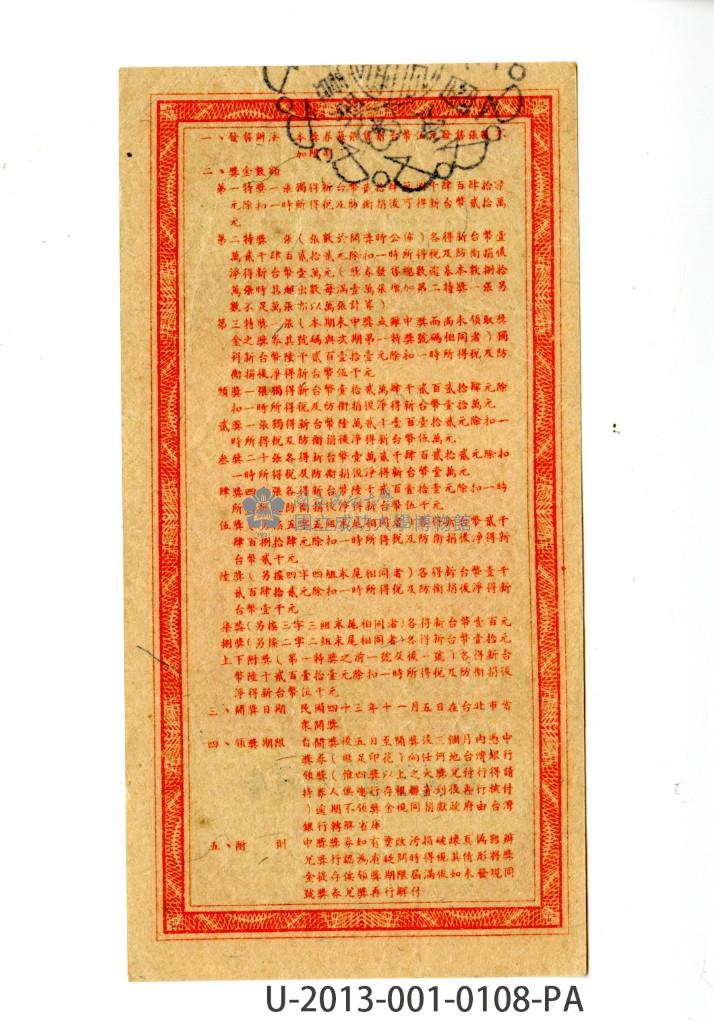 一、發售辦法　本獎券每張售新台幣伍元發售張數不
加限制
二、獎金數額
第一特獎一張獨得新台幣貳拾肆萬捌千肆百肆拾柒
元除扣一時所得稅及防衛捐後可得新台幣貳拾萬
元
第二特獎　張（張數於開獎時公佈）各得新台幣壹
萬貳千肆百貳拾貳元除扣一時所得稅及防衛捐後
淨得新台幣壹萬元（獎券發售總數逾券本數捌拾
萬張時其超出數每滿壹萬張增加第二特獎一張另
數不足萬張亦以萬張計算）
第三特獎一張（本期未中獎或雖中獎而尚未領取獎
金之獎券其號碼與次期第一特獎號碼相同者）獨
得新台幣陸千貳百壹拾壹元除扣一時所得稅及防
衛捐後淨得新台幣伍千元
頭獎一張獨得新台幣壹拾貳萬肆千貳百貳拾肆元除
扣一時所得稅及防衛捐後淨得新台幣壹拾萬元
貳獎一張獨得新台幣陸萬貳千壹百壹拾貳元除扣一
時所得稅及防衛捐後淨得新台幣伍萬元
叁獎二十張各得新台幣壹萬貳千肆百貳拾貳元除扣
一時所得稅及防衛捐後淨得新台幣壹萬元
肆獎四　張各得新台幣陸千貳百壹拾壹元除扣一時
所　　防衛捐後淨得新台幣伍千元
伍獎　　五字五組末尾相同者　各得新台幣貳千
肆百捌拾肆元除扣一時所得稅及防衛捐後淨得新
台幣貳千元
陸獎（另搖四字四組末尾相同者）各得新台幣壹千
貳百肆拾貳元除扣一時所得稅及防衛捐後淨得新
台幣壹千元
柒獎（另搖三字三組末尾相同者）各得新台幣壹百元
捌獎（另搖二字二組末尾相同者）各得新台幣壹拾元
上下附獎（第一特獎之前一號及後一號）各得新台
幣陸千貳百壹拾壹元除扣一時所得稅及防衛捐後
淨得新台幣伍千元
三、開獎日期　民國四十三年十一月五日在台北市當
眾開獎
四、領獎期限　自開獎後五日至開獎後三個月內憑中
獎券（貼足印花）向任何地台灣銀行
領獎（惟四獎以上之大獎兌付行得請
持券人俟總行存根聯查到後再行核付
）逾期不領獎金視同捐獻政府由台灣
銀行轉解省庫
五、附　則　中獎獎券如有塗改污損破壞真偽難辨
兌獎行認為有疑問時得視其情形將獎
金從存俟領獎期限屆滿後如未發現同
號獎券兌獎再行解付
國立成功大學
國立成功大學博物館
U-2013-001-0108-PA